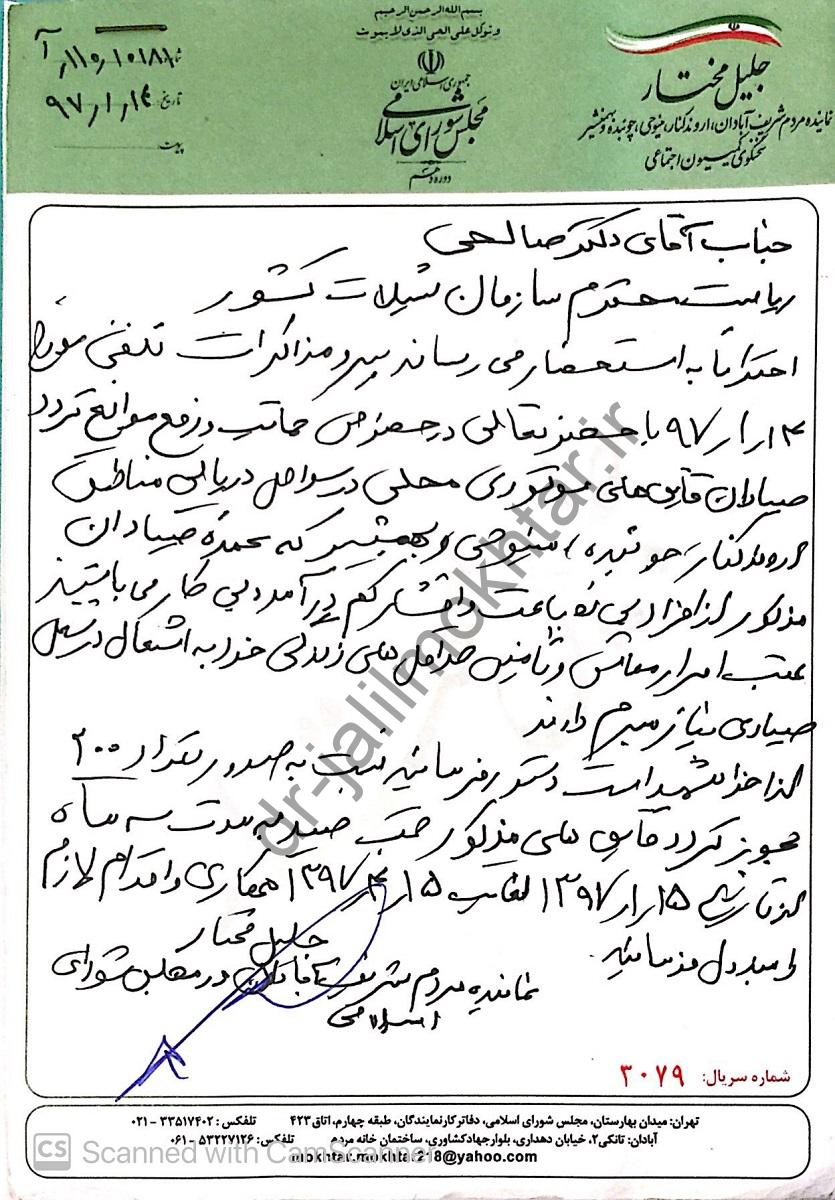 بسم الله الرحمن الرحیم
و توکل علی الحی الذی لا یموت
جمهوری اسلامی ایران
مجلس شورای اسلامی
دوره دهم
جلیل مختار
نماینده مردم شریف آبادان، اروندکنار، مینوحی، چوئبده و بهمنشیر
سخنگوی کمیسیون اجتماعی
تاریخ: ۹۷/۱/۱۴
پیوست:
جناب آقای دکتر صالحی
ریاست محترم سازمان شیلات کشور
احتراماً به استحضار می رساند پیرو مذاکرات تلفنی مورخ
۹۷/۱/۱۴ با حضرتعالی در خصوص حمایت و رفع موانع تردد
صیادان قایق های موتوری محلی در سواحل دریایی مناطق
اروندکنار، چوئبده، مینوحی و بهمنشیر که عمده صیادان
مذکور از افراد بی بضاعت و اقشار کم درآمد و بی کار می باشند
جهت امرار معاش و تامین حداقل های زندگی خود به اشتغال در شغل
صیادی نیاز مبرم دارند
لذا خواهشمند است دستور فرمائید نسبت به صدور تعداد ۲۰۰
مجوز تردد قایق های مذکور جهت صید به مدت سه ماه
از تاریخ ۱۳۹۷/۱/۱۵ لغایت ۱۳۹۷/۴/۱۵ همکاری و اقدام لازم
را مبذول فرمائید.
جلیل مختار
نماینده مردم شریف آبادان در مجلس شورای
اسلامی
dr-jalilmokhtar.ir
شماره سریال: ۳۰۷۹
تهران: میدان بهارستان، مجلس شورای اسلامی، دفاتر کار نمایندگان، طبقه چهارم، اتاق ۴۲۳ تلفکس: ۳۳۵۱۷۴۰۲ - ۰۲۱
آبادان: تانکی۲، خیابان دهداری، بلوار جهادکشاورزی، ساختمان خانه مردم تلفکس: ۵۳۲۲۷۱۲۶ - ۰۶۱
mokhtar.mokhtar218@yahoo.com
CS Scanned with CamScanner